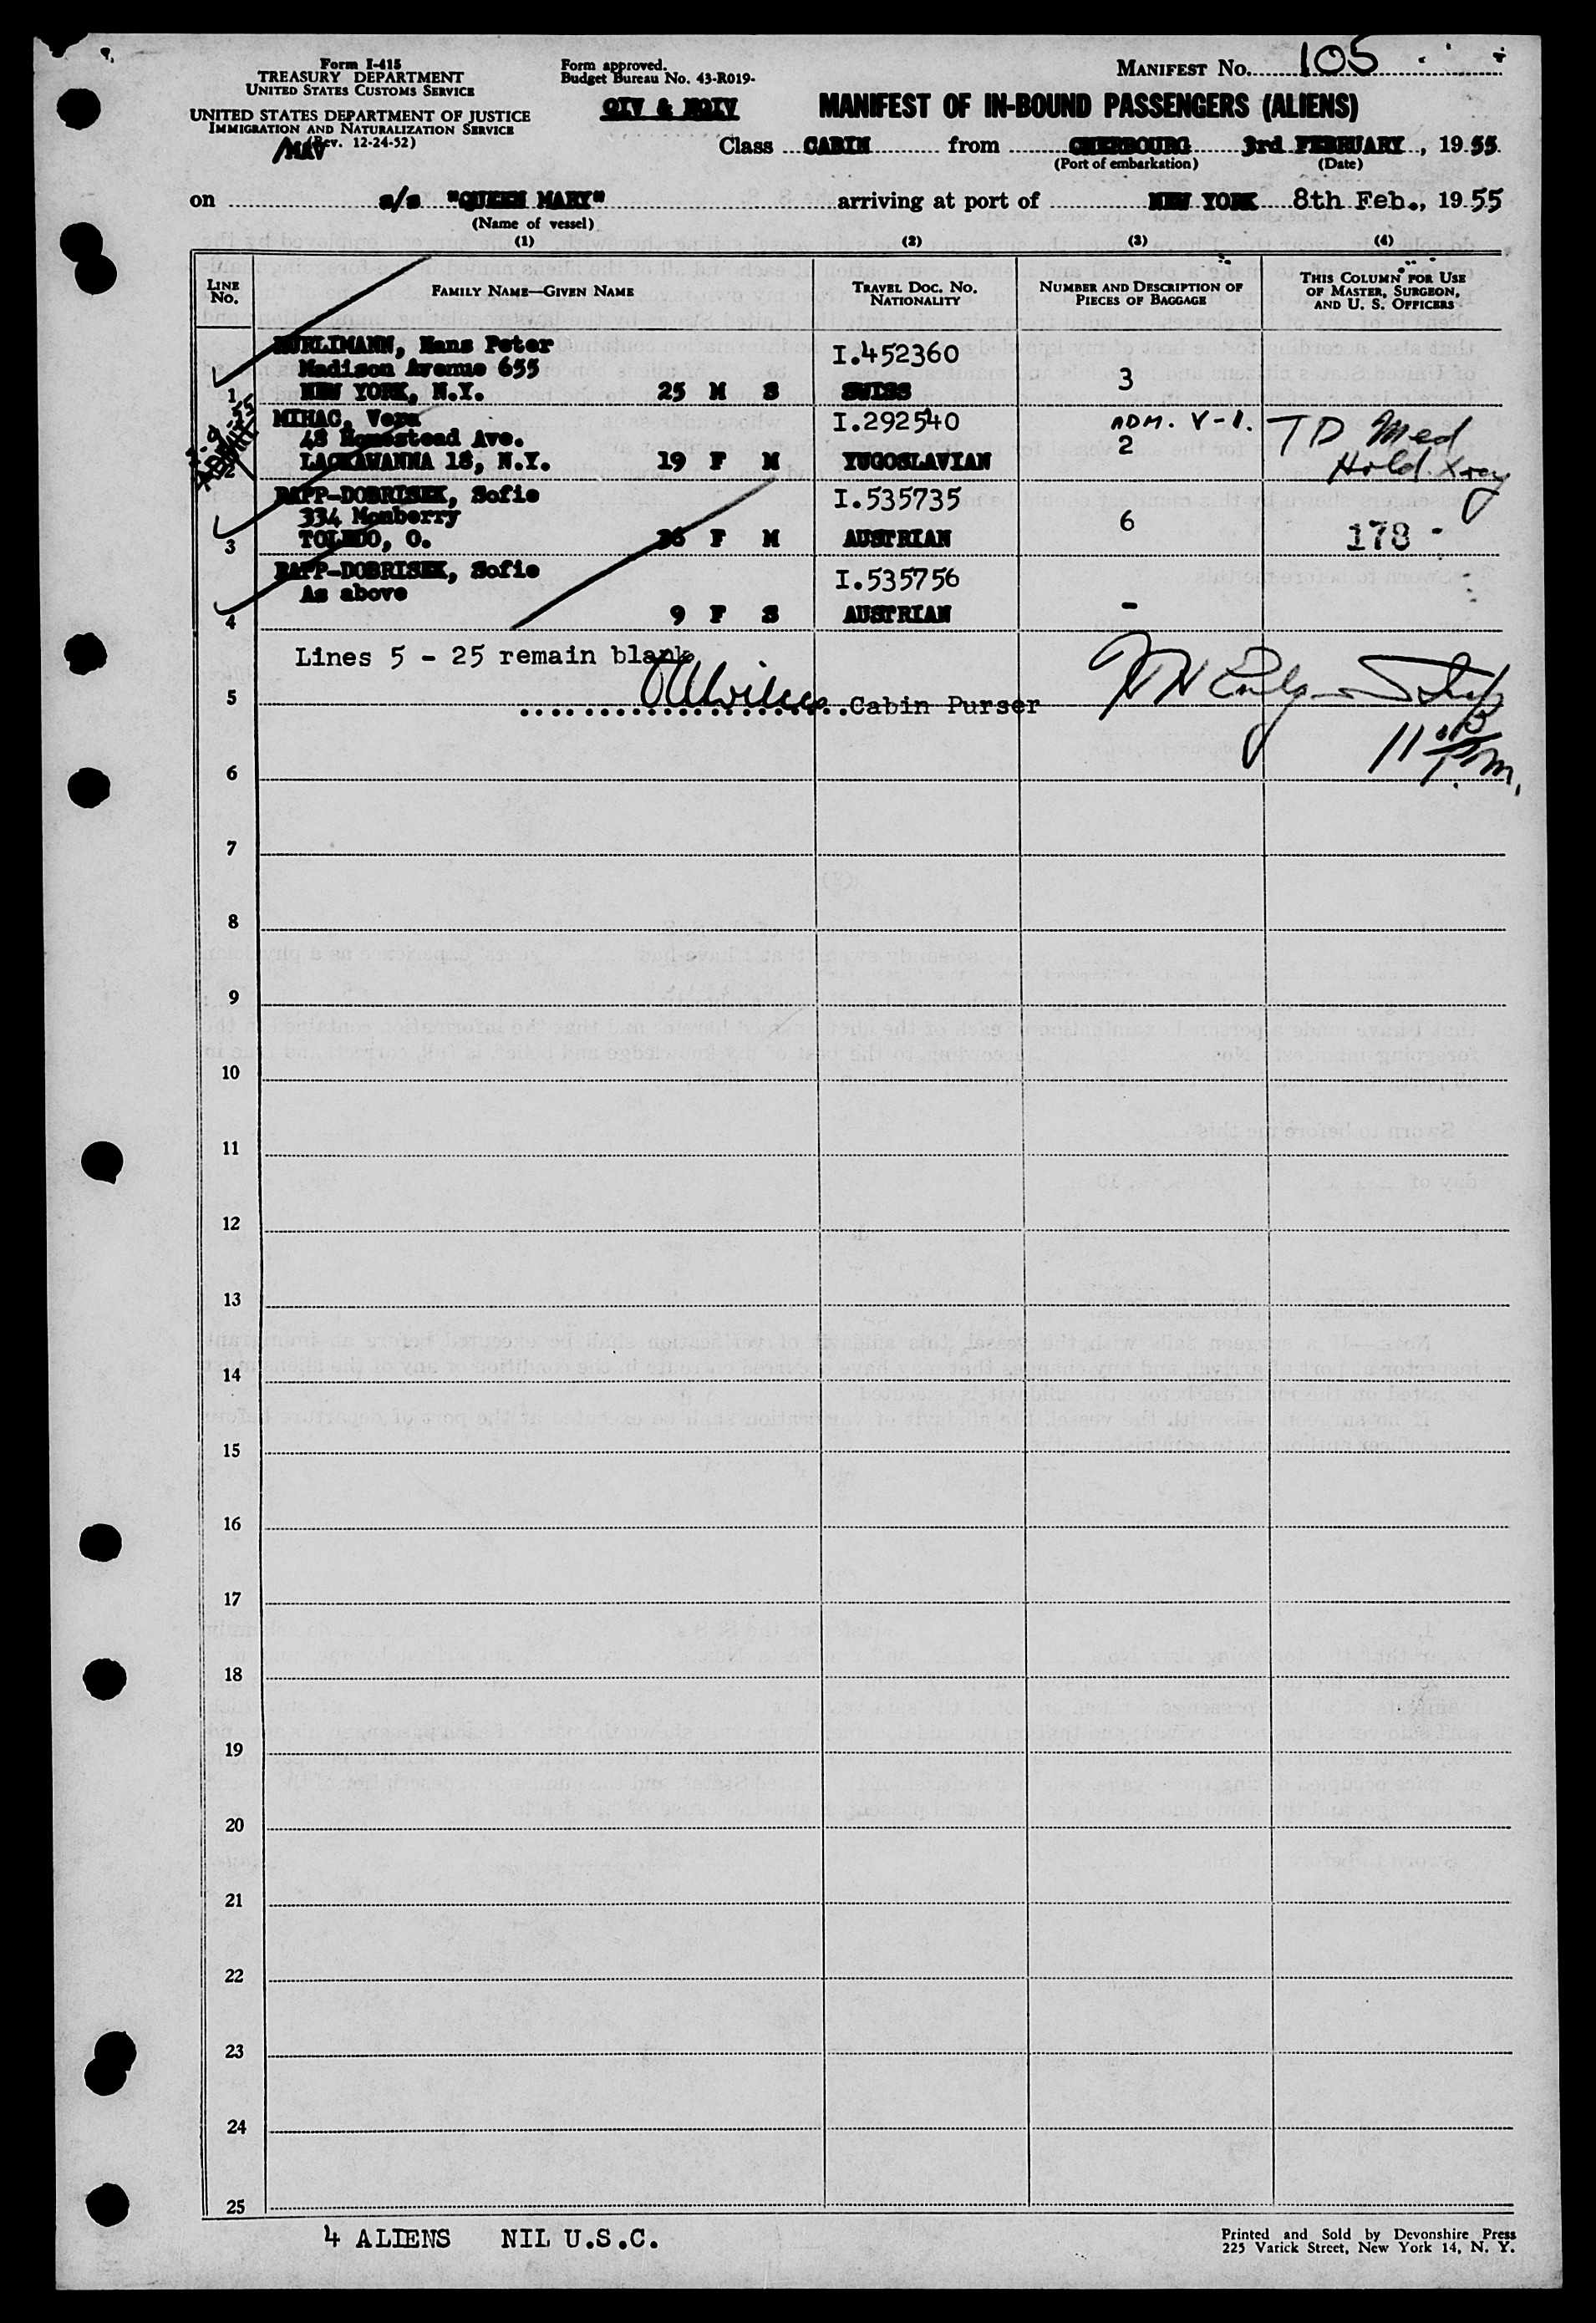 Form I-415
TREASURY DEPARTMENT
UNITED STATES CUSTOMS SERVICE
UNITED STATES DEPARTMENT OF JUSTICE
IMMIGRATION AND NATURALIZATION SERVICE
(Rev. 12-24-52)
/MAV
Form approved.
Budget Bureau No. 43-R019-
QIV & NQIV
MANIFEST NO. 105
MANIFEST OF IN-BOUND PASSENGERS (ALIENS)
Class CABIN from CHERBOURG 3rd FEBRUARY, 1955
(Port of embarkation) (Date)
on s/s "QUEEN MARY" arriving at port of NEW YORK 8th Feb., 1955
(Name of vessel)
(1) (2) (3) (4)
LINE NO. FAMILY NAME—GIVEN NAME TRAVEL DOC. NO. NATIONALITY NUMBER AND DESCRIPTION OF PIECES OF BAGGAGE THIS COLUMN FOR USE OF MASTER, SURGEON, AND U. S. OFFICERS
HURLIMANN, Hans Peter I.452360
Madison Avenue 655
1 NEW YORK, N.Y. 25 M S SWISS 3
MIHAC, Vera I.292540 ADM. V-1. TD Med
48 Homestead Ave. 2 Hold Xray
2 LACKAWANNA 18, N.Y. 19 F M YUGOSLAVIAN
2-9-55
ADMIT
RAPP-DOBRISEK, Sofie I.535735
334 Monberry 6
3 TOLEDO, O. 36 F M AUSTRIAN 178 -
RAPP-DOBRISEK, Sofie I.535756
As above
4 9 F S AUSTRIAN -
Lines 5 - 25 remain blank
5 Cabin Purser
11
P.m.
6
7
8
9
10
11
12
13
14
15
16
17
18
19
20
21
22
23
24
25
4 ALIENS NIL U.S.C.
Printed and Sold by Devonshire Press
225 Varick Street, New York 14, N. Y.